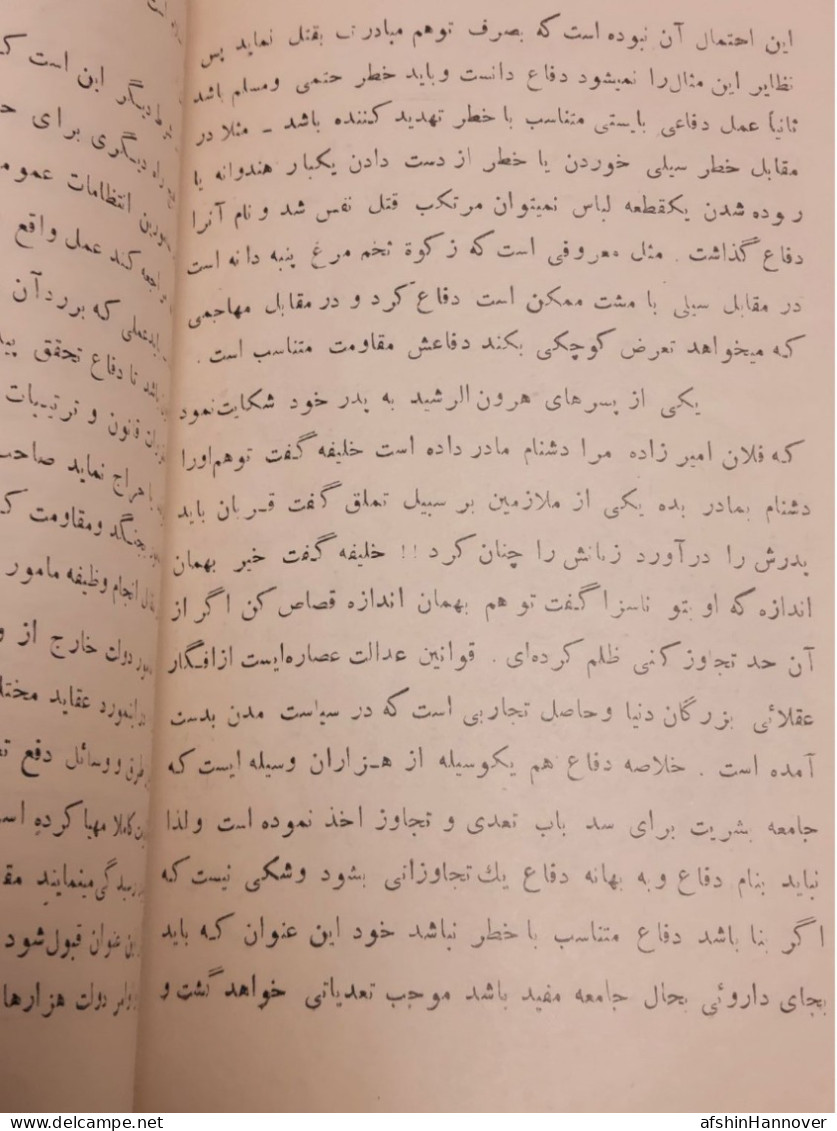 این احتمال آن نبوده است که بصرف توهم مبادرت بقتل نماید پس
نظایر این مثال را نمیشود دفاع دانست وباید خطر حتمی ومسلم باشد
ثانیاً عمل دفاعی بایستی متناسب با خطر تهدید کننده باشد - مثلا در
مقابل خطر سیلی خوردن یا خطر از دست دادن یکبار هندوانه یا
ربوده شدن یکقطعه لباس نمیتوان مرتکب قتل نفس شد و نام آنرا
دفاع گذاشت . مثل معروفی است که زکوة تخم مرغ پنبه دانه است
در مقابل سیلی با مشت ممکن است دفاع کرد و در مقابل مهاجمی
که میخواهد تعرض کوچکی بکند دفاعش مقاومت متناسب است .
یکی از پسرهای هرون الرشید به پدر خود شکایت نمود
که فلان امیر زاده مرا دشنام مادر داده است خلیفه گفت توهم اورا
دشنام بمادر بده یکی از ملازمین بر سبیل تملق گفت قربان باید
پدرش را درآورد زبانش را چنان کرد !! خلیفه گفت خیر بهمان
اندازه که او بتو ناسزا گفت تو هم بهمان اندازه قصاص کن اگر از
آن حد تجاوز کنی ظلم کرده‌ای . قوانین عدالت عصاره‌ایست از افکار
عقلائی بزرگان دنیا وحاصل تجاربی است که در سیاست مدن بدست
آمده است . خلاصه دفاع هم یکوسیله از هزاران وسیله ایست که
جامعه بشریت برای سد باب تعدی و تجاوز اخذ نموده است ولذا
نباید بنام دفاع وبه بهانه دفاع یك تجاوزاتی بشود وشکی نیست که
اگر بنا باشد دفاع متناسب با خطر نباشد خود این عنوان که باید
بجای داروئی بحال جامعه مفید باشد موجب تعدیاتی خواهد گشت و
دیگر این است که
راه دیگری برای
انتظامات
کند عمل واقع
که بررد آن
تا دفاع تحقق
قانون و ترتیبات
حراج نماید صاحب
ومقاومت
انجام وظیفه مامور
دولت خارج از
عقاید
ووسائل دفع
کاملا مهیا کرده
مینمایند
این عنوان قبول شود
دولت هزارها
delcampe.net
afshinHannover